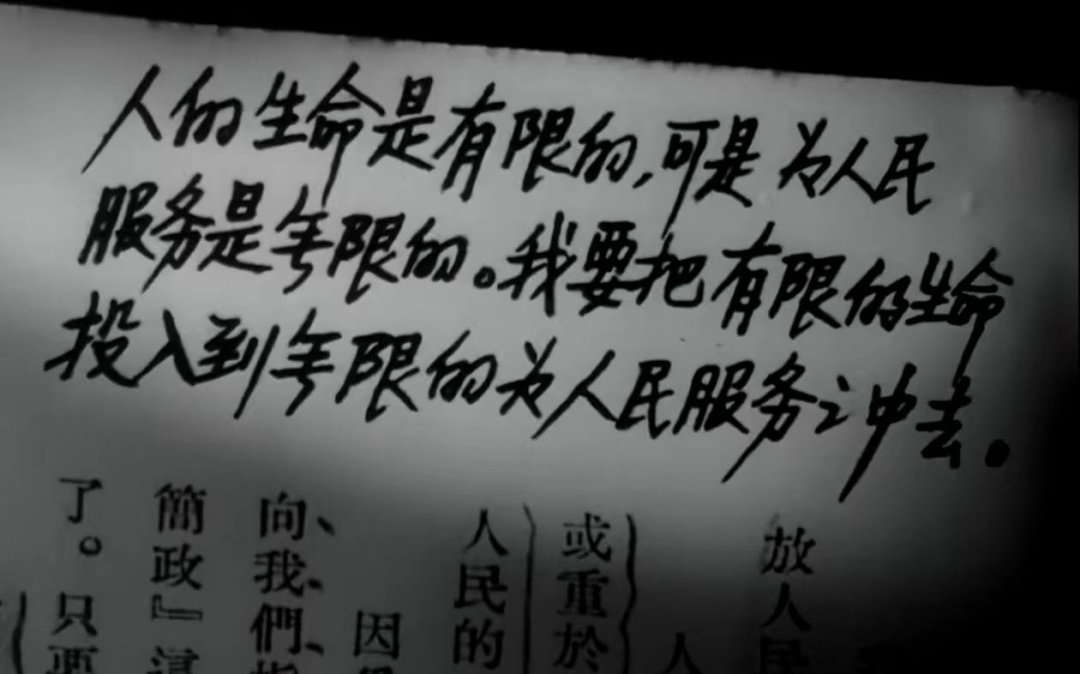 人的生命是有限的,可是为人民
服务是无限的。我要把有限的生命
投入到无限的为人民服务之中去。
放人民
人
或重於
人民的
因
向、我、們、
簡政』這
了。只要